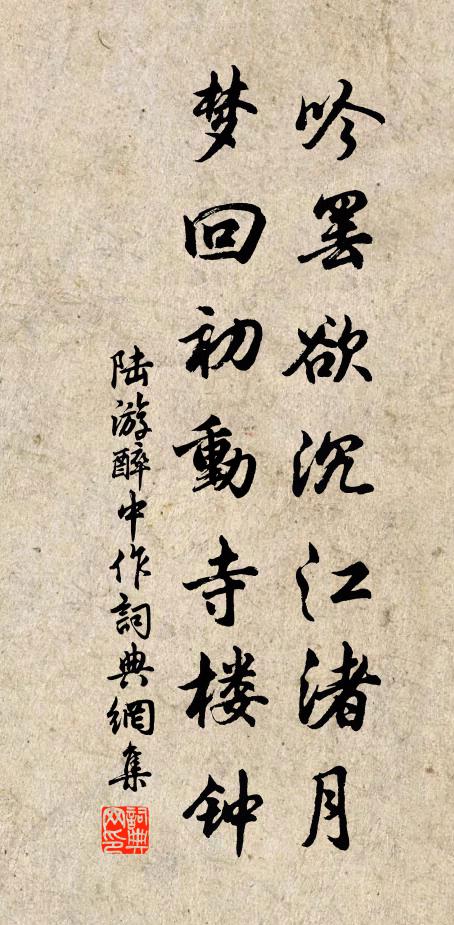 吟罢欲沉江渚月
梦回初動寺楼钟
陆游醉中作詞典網集
詞典
网印